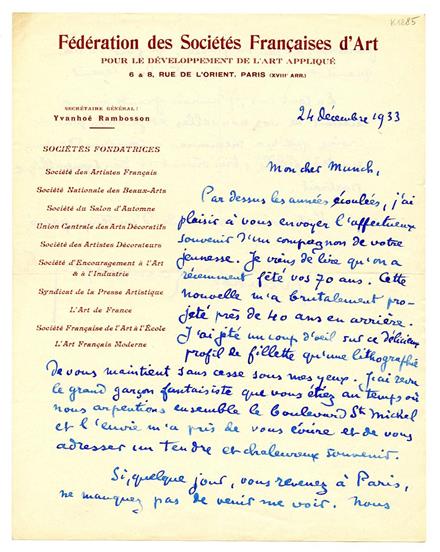 K1285
Fédération des Sociétés Françaises d'Art
POUR LE DÉVELOPPEMENT DE L'ART APPLIQUÉ
6 & 8, RUE DE L'ORIENT, PARIS (XVIIIe ARR.)
SECRÉTAIRE GÉNÉRAL:
Yvanhoé Rambosson
SOCIÉTÉS FONDATRICES
Société des Artistes Français
Société Nationale des Beaux-Arts
Société du Salon d'Automne
Union Centrale des Arts Décoratifs
Société des Artistes Décorateurs
Société d'Encouragement à l'Art
& à l'Industrie
Syndicat de la Presse Artistique
L'Art de France
Société Française de l'Art à l'École
L'Art Français Moderne
24 décembre 1933
Mon cher Munch,
Par dessus les années écoulées, j'ai
plaisir à vous envoyer l'affectueux
souvenir d'un compagnon de votre
jeunesse. Je viens de lire qu'on a
récemment fêté vos 70 ans. Cette
nouvelle m'a brutalement pro-
jeté près de 40 ans en arrière.
J'ai jeté un coup d'oeil sur ce délicieux
profil de fillette qu'une lithographie
de vous maintient sans cesse sous mes yeux. J'ai revu
le grand garçon fantaisiste que vous étiez au temps où
nous arpentions ensemble le boulevard St Michel
et l'envie m'a pris de vous écrire et de vous
adresser un tendre et chaleureux souvenir.
Si, quelque jour, vous revenez à Paris,
ne manquez pas de venir me voir. Nous